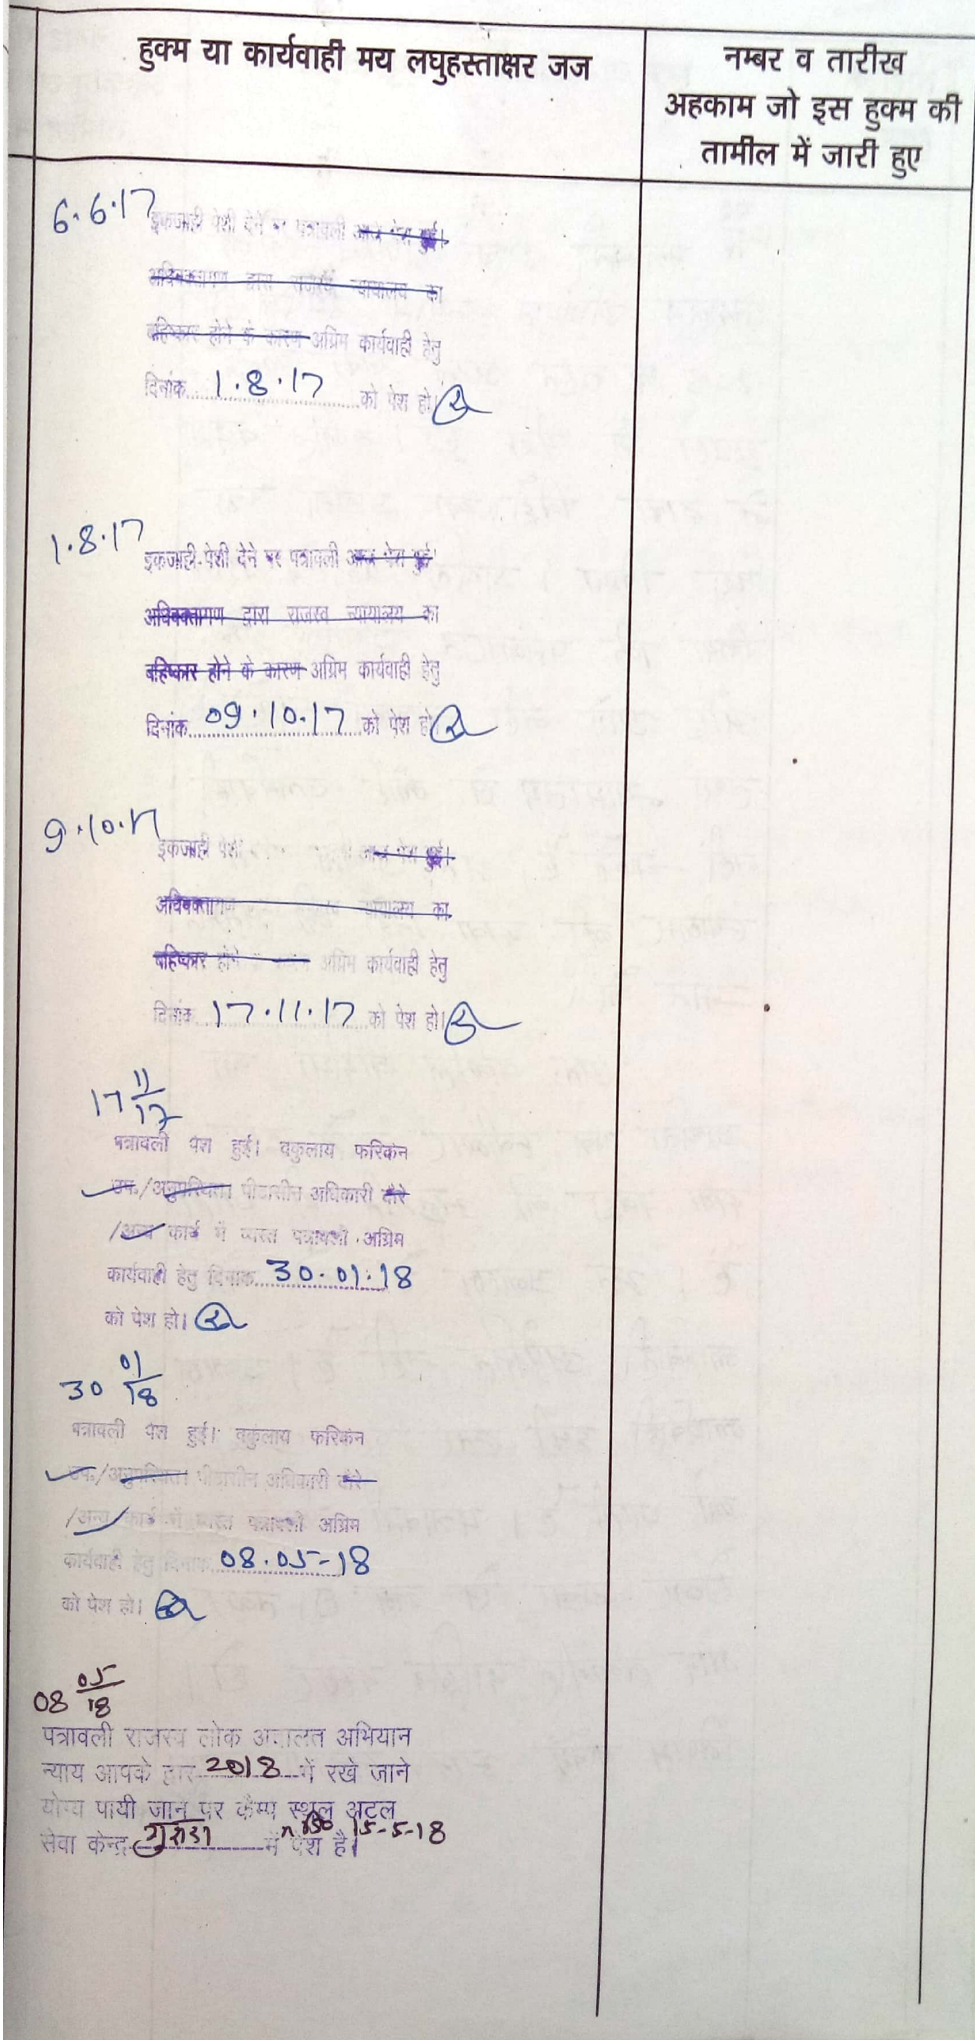 हुक्म या कार्यवाही मय लघुहस्ताक्षर जज
नम्बर व तारीख
अहकाम जो इस हुक्म की
तामील में जारी हुए
6.6.17
इकजाही पेशी देने पर पत्रावली आज पेश हुई।
अधिवक्तागण द्वारा राजस्व न्यायालय का
बहिष्कार होने के कारण अग्रिम कार्यवाही हेतु
दिनांक 1.8.17 को पेश हो।
1.8.17
इकजाही पेशी देने पर पत्रावली आज पेश हुई।
अधिवक्तागण द्वारा राजस्व न्यायालय का
बहिष्कार होने के कारण अग्रिम कार्यवाही हेतु
दिनांक 09.10.17 को पेश हो।
9.10.17
इकजाही पेशी आज पेश हुई।
अधिवक्तागण न्यायालय का
बहिष्कार होने के कारण अग्रिम कार्यवाही हेतु
दिनांक 17.11.17 को पेश हो।
17 11/17
पत्रावली पेश हुई। वकुलाय फरिकेन
उप./अनुपस्थित। पीठासीन अधिकारी दौरे
/अन्य कार्य में व्यस्त पत्रावली अग्रिम
कार्यवाही हेतु दिनांक 30.01.18
को पेश हो।
30 01/18
पत्रावली पेश हुई। वकुलाय फरिकेन
उप./अनुपस्थित। पीठासीन अधिकारी दौरे
/अन्य कार्य में व्यस्त पत्रावली अग्रिम
कार्यवाही हेतु दिनांक 08.05-18
को पेश हो।
08 05/18
पत्रावली राजस्व लोक अदालत अभियान
न्याय आपके द्वार 2018 में रखे जाने
योग्य पायी जाने पर कैम्प स्थल अटल
सेवा केन्द्र में पेश है। 15-5-18